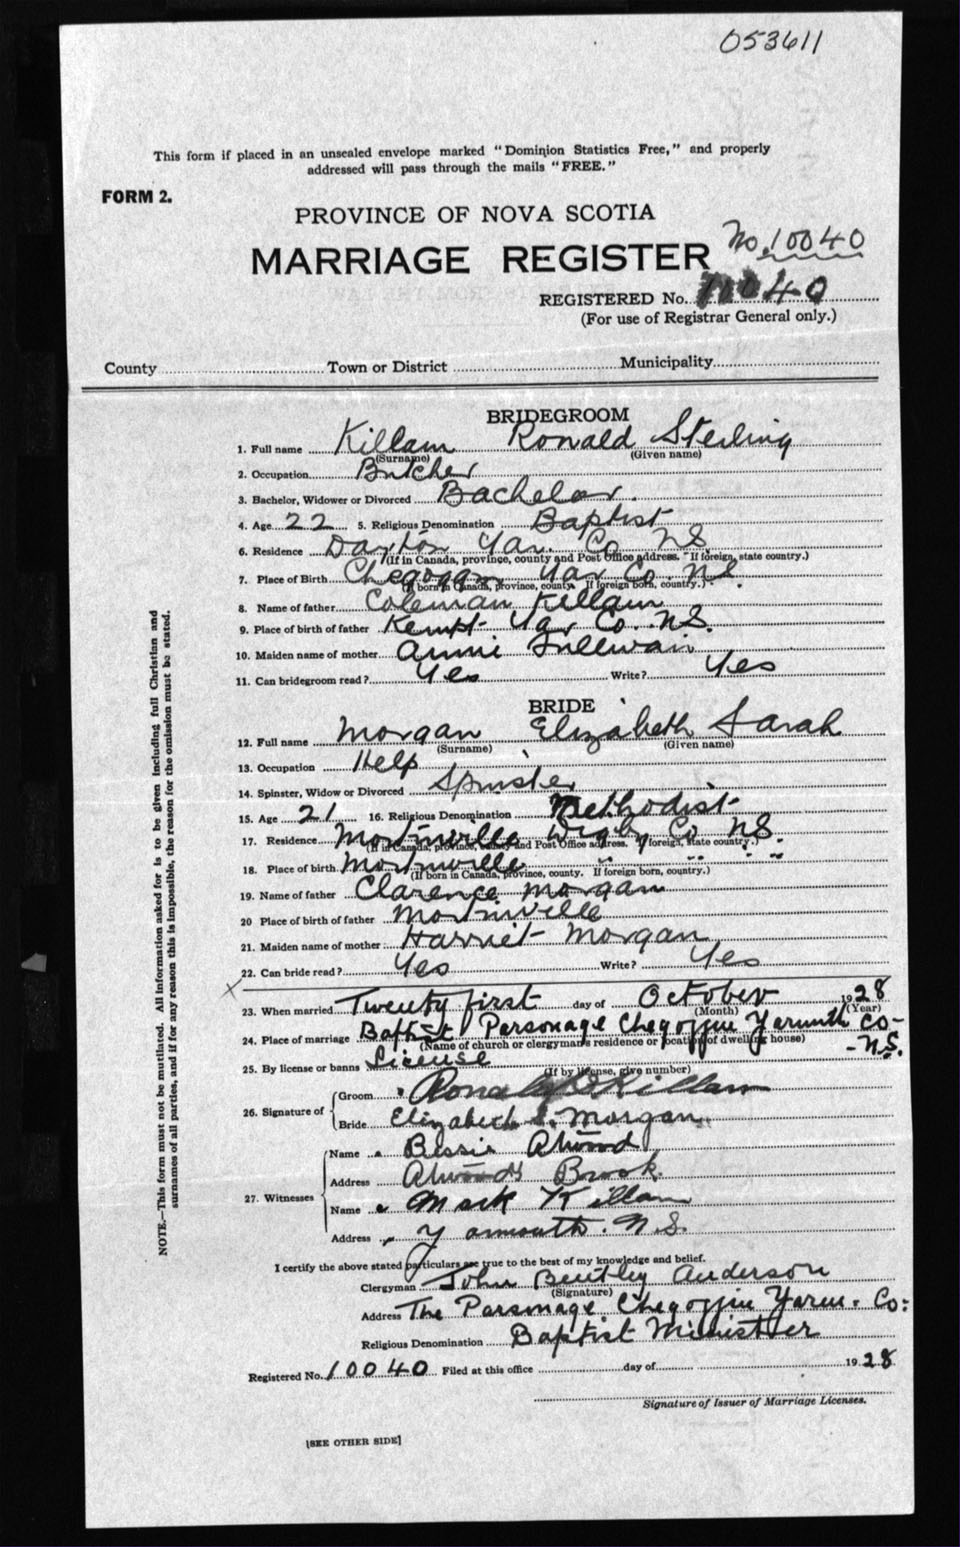 053611
This form if placed in an unsealed envelope marked "Dominion Statistics Free," and properly
addressed will pass through the mails "FREE."
FORM 2.
PROVINCE OF NOVA SCOTIA
No. 10040
MARRIAGE REGISTER
REGISTERED No. 10040
(For use of Registrar General only.)
County Town or District Municipality
BRIDEGROOM
1. Full name Killam Ronald Sterling
(Surname) (Given name)
2. Occupation Butcher
3. Bachelor, Widower or Divorced Bachelor.
4. Age 22 5. Religious Denomination Baptist
6. Residence Dayton Yar. Co NS
(If in Canada, province, county and Post Office address. If foreign, state country.)
7. Place of Birth Chegoggin Yar Co. N.S.
(If born in Canada, province, county. If foreign born, country.)
8. Name of father Coleman Killam
9. Place of birth of father Kempt Yar Co. N.S.
10. Maiden name of mother Annie
11. Can bridegroom read? Yes Write? Yes
BRIDE
12. Full name Morgan Elizabeth Sarah
(Surname) (Given name)
13. Occupation Help
14. Spinster, Widow or Divorced Spinster
15. Age 21 16. Religious Denomination Methodist
17. Residence Mortinville Digby Co NS.
(If in Canada, province, county and Post Office address. If foreign, state country.)
18. Place of birth Mortinville " " "
(If born in Canada, province, county. If foreign born, country.)
19. Name of father Clarence Morgan
20 Place of birth of father Mortinville
21. Maiden name of mother Harriet Morgan
22. Can bride read? Yes Write? Yes
X
23. When married Twenty first day of October 1928
(Month) (Year)
24. Place of marriage Baptist Parsonage Chegoggin Yarmouth Co-
(Name of church or clergymans residence or location of dwelling house) -N.S.
25. By license or banns License
(If by license, give number)
26. Signature of Groom Ronald S Killam
Bride Elizabeth S. Morgan
27. Witnesses Name Bessie Atwood
Address Atwoods Brook
Name Mark Killam
Address Yarmouth. N.S.
I certify the above stated particulars are true to the best of my knowledge and belief.
Clergyman John Bentley Anderson
(Signature)
Address The Parsonage Chegoggin Yarm. Co:
Religious Denomination Baptist Minister
Registered No. 10040 Filed at this office day of 1928
Signature of Issuer of Marriage Licenses.
[SEE OTHER SIDE]
NOTE.—This form must not be mutilated. All information asked for is to be given including full Christian and
surnames of all parties, and if for any reason this is impossible, the reason for the omission must be stated.